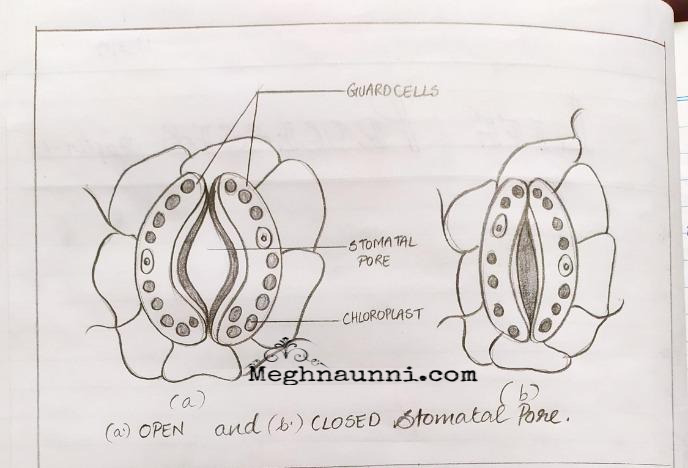 GUARDCELLS
STOMATAL
PORE
CHLOROPLAST
Meghnaunni.com
(a) (b)
(a) OPEN and (b.) CLOSED Stomatal Pore.